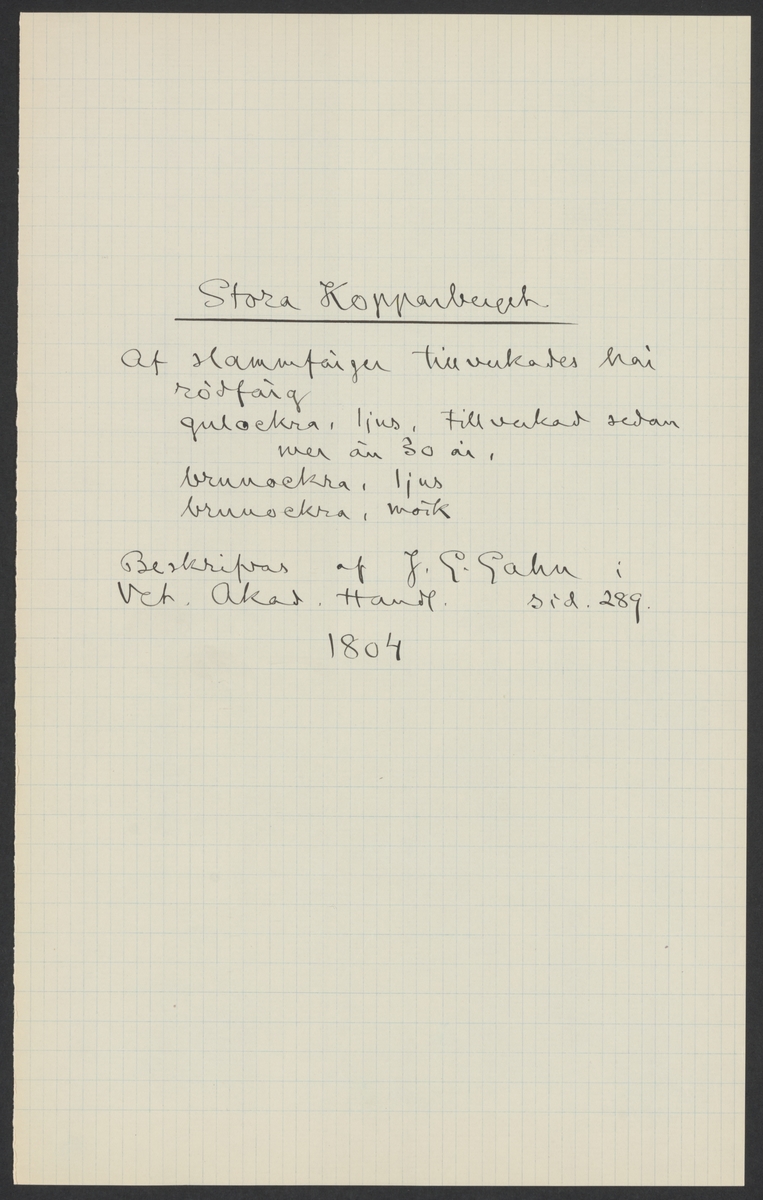 Stora Kopparberget
Af slammfärger tillverkades här
rödfärg
gulockra, ljus, tillverkad sedan
mer än 30 år,
brunockra, ljus
brunockra, mörk
Beskrifvas af J. G. Gahn i
Vet. Akad. Handl. sid. 289.
1804